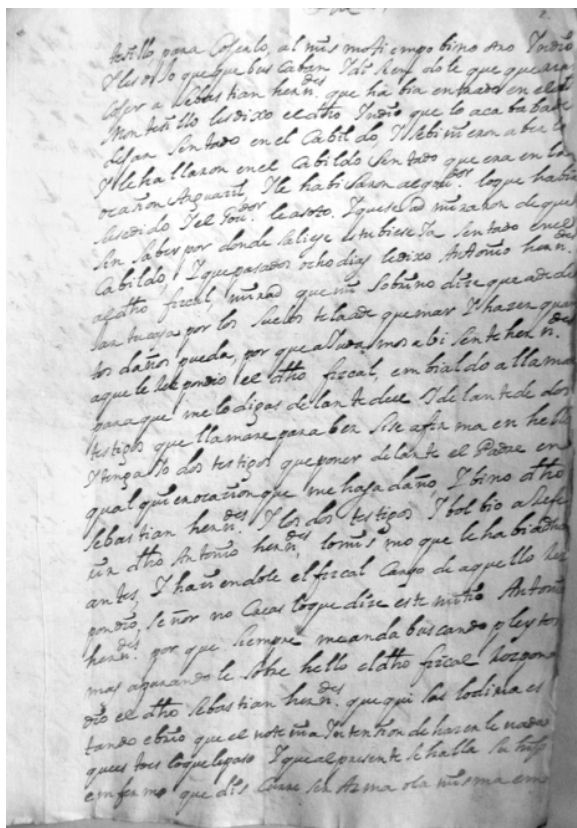 testillo para Coserlo, al mismo tiempo bino otro Yndio
Y les dijo que que buscaban Y diziendole que querian
Coser a Sebastian herndes que habia entrado en el
Montesillo les dixo el dho Yndio que lo acababa de
dejar sentado en el Cabildo, Y se binieron a berlo
Y le hallaron en el Cabildo Sentado que era en la
ocasion Arguazil, Y le habisaron al gordor lo que habia
susedido Y el Gordor le asoto. Y que se admiraron de que
sin saber por donde saliese estubiese Ya sentado en el
Cabildo, Y que pasados ocho dias le dixo Antonio herndes
a dho fiscal, mirad que mi Sobrino dize que a de de
jar tu casa por los suelos te la a de quemar Y hazer quan
tos daños pueda, por que aiudamos a bisente herndes
a que le respondio el dho fiscal, embialdo a llamar
para que me lo digas delante dele Y delante de dos
testigos que llamare para ber si se afirma en hello
Y tenga Yo dos testigos que poner delante el Padre en
qualquier ocasion que me haga daño, Y bino dho
Sebastian herndes Y los dos testigos Y bolbio a dezir
dho Antonio herndes lo mismo que le habia dicho
antes, Y haziendole el fiscal Cargo de aquello res
pondio, Señor no Cacas lo que dize este mi tio Antonio
herndes por que siempre me anda buscando pleytos
mas apurandole sobre hello el dho fiscal respon
dio el dho Sebastian herndes que quisas lo diria es
tando ebrio que el no tenia Yntension de hazerle nada
que es todo lo que paso Y que al presente se halla su hijo
enfermo que dis Corre sin Arma o la misma enfer